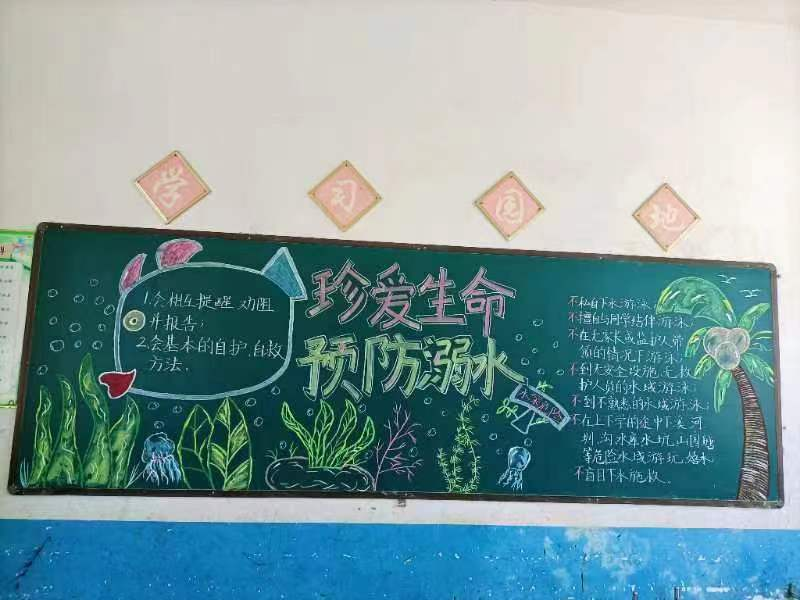 学习园地
珍爱生命
预防溺水
1.会相互提醒、劝阻
并报告;
2.会基本的自护、自救
方法.
不私自下水游泳;
不擅自与同学结伴游泳;
不在无家长或监护人带
领的情况下游泳;
不到无安全设施、无救
护人员的水域游泳;
不到不熟悉的水域游泳;
不在上下学的途中下
等危险水域游玩、嬉水
不盲目下水施救.